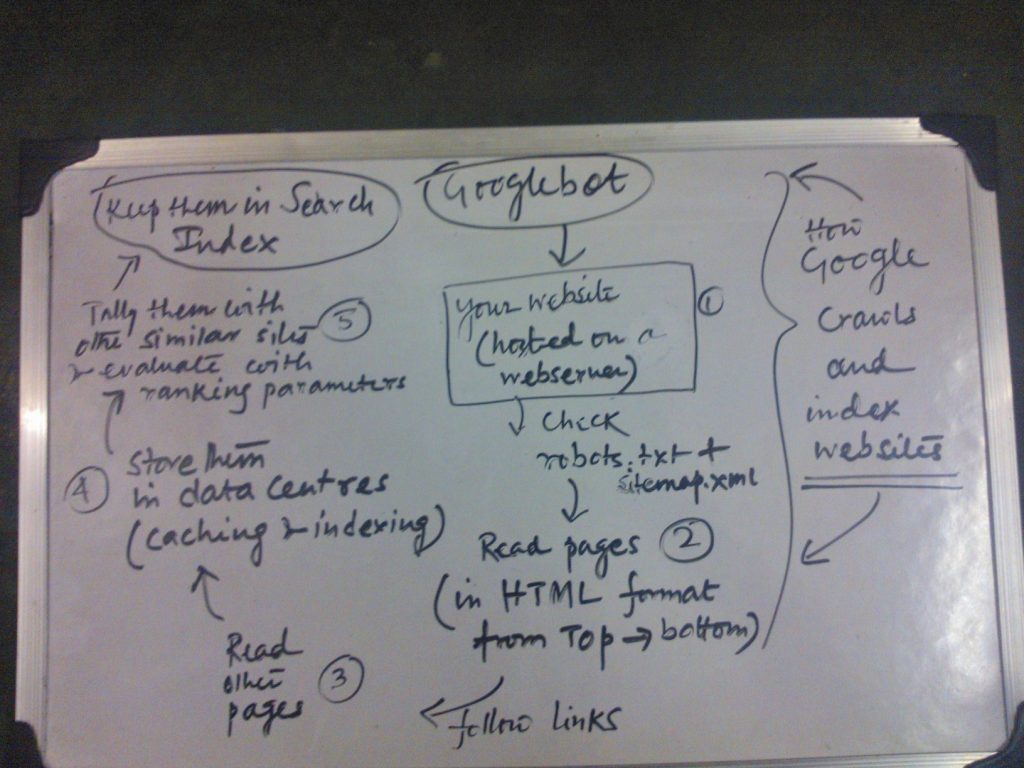 Googlebot
Your website
(hosted on a
webserver)
①
Check
robots.txt +
sitemap.xml
Read pages ②
(in HTML format
from Top → bottom)
follow links
Read
other
pages
③
④
Store them
in data centres
(caching & indexing)
Tally them with
other similar sites
& evaluate with
ranking parameters
⑤
Keep them in Search
Index
How
Google
Crawls
and
index
websites